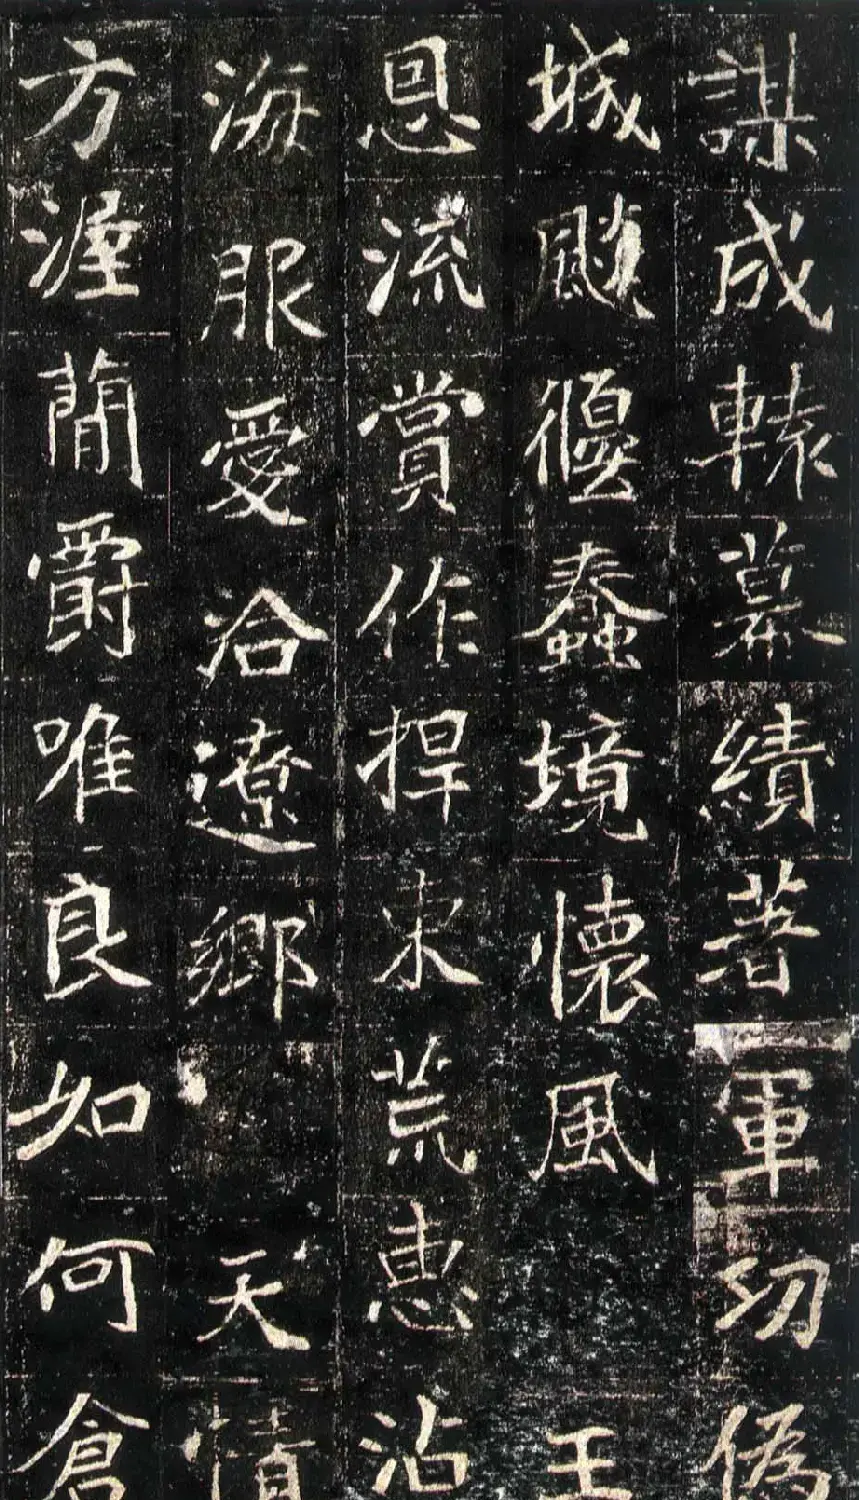 謀成轅幕績著軍功偽
城颷偃蠢境懷風王
恩流賞作捍東荒惠沾
海服愛洽遼鄉天情
方渥簡爵唯良如何倉